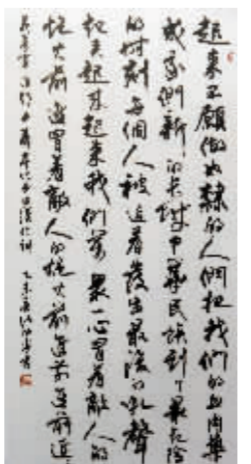 起来不願做奴隸的人們把我們的血肉築
成我們新的长城中華民族到了最危险
的时刻每個人被迫着發出最後的吼聲
起来起来起来我們万衆一心冒着敵人的
炮火前進冒着敵人的炮火前進前進前進
乙未